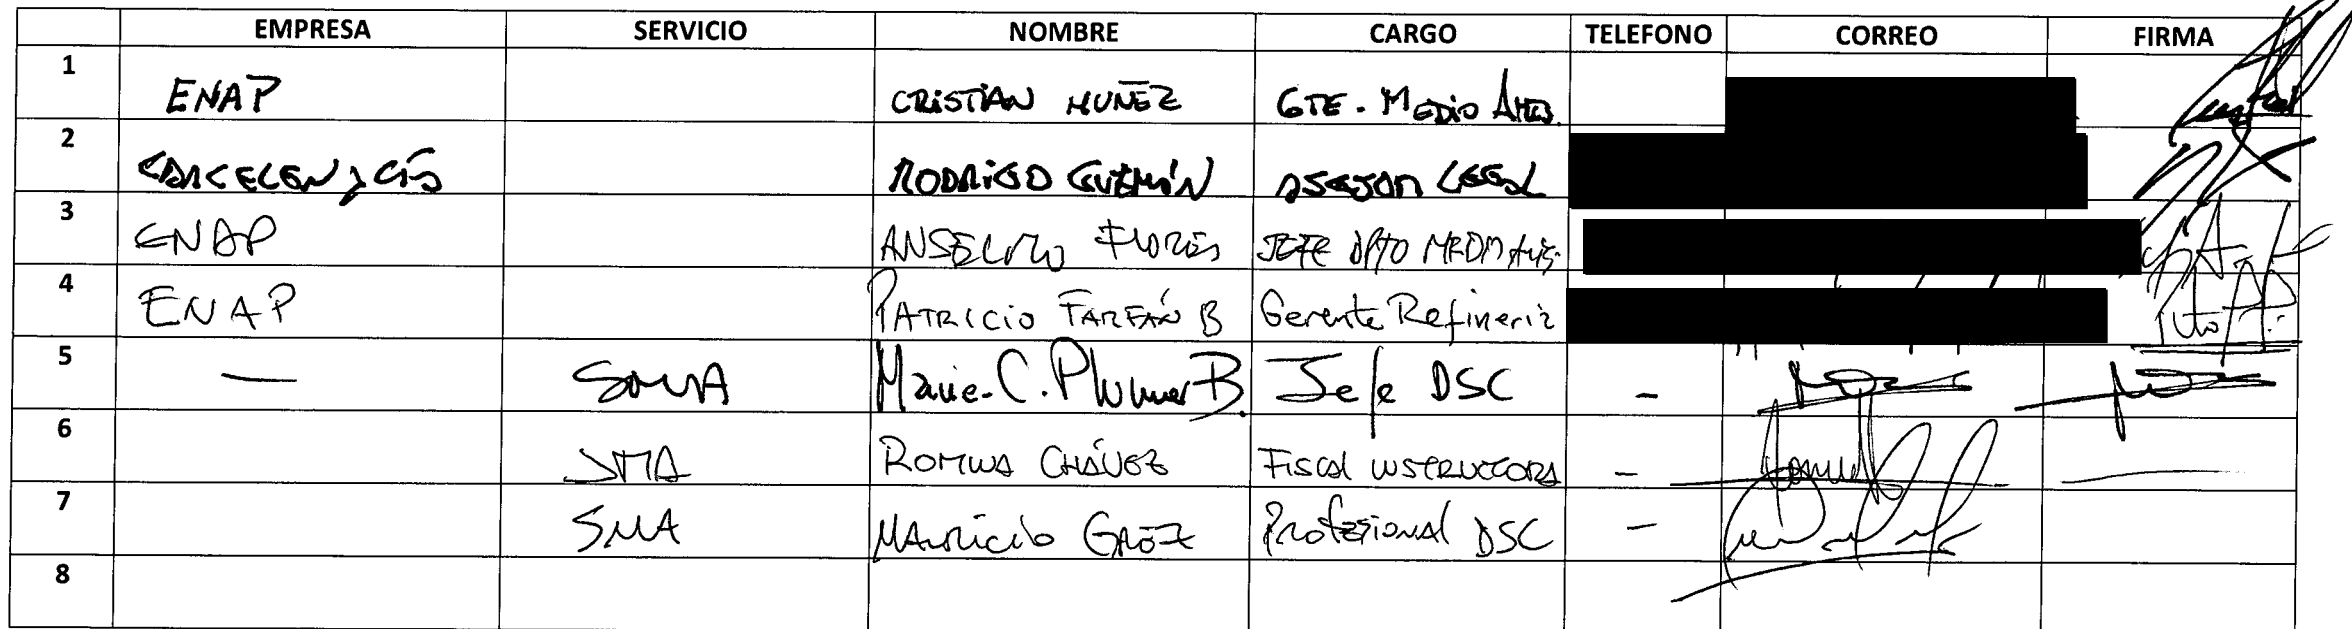 EMPRESA SERVICIO NOMBRE CARGO TELEFONO CORREO FIRMA
1 ENAP CRISTIAN MUÑEZ GTE. MEDIO AMB.
2 RODRIGO GUZMÁN ASESOR LEGAL
3 ENAP ANSELMO FLORES JEFE DPTO
4 ENAP PATRICIO FARFÁN B Gerente Refineria
5 — SMA Marie. C. Plumer B. Jefe DSC -
6 SMA ROMINA CHÁVEZ FISCAL INSTRUCTORA -
7 SMA MAURICIO GRÉZ Profesional DSC -
8